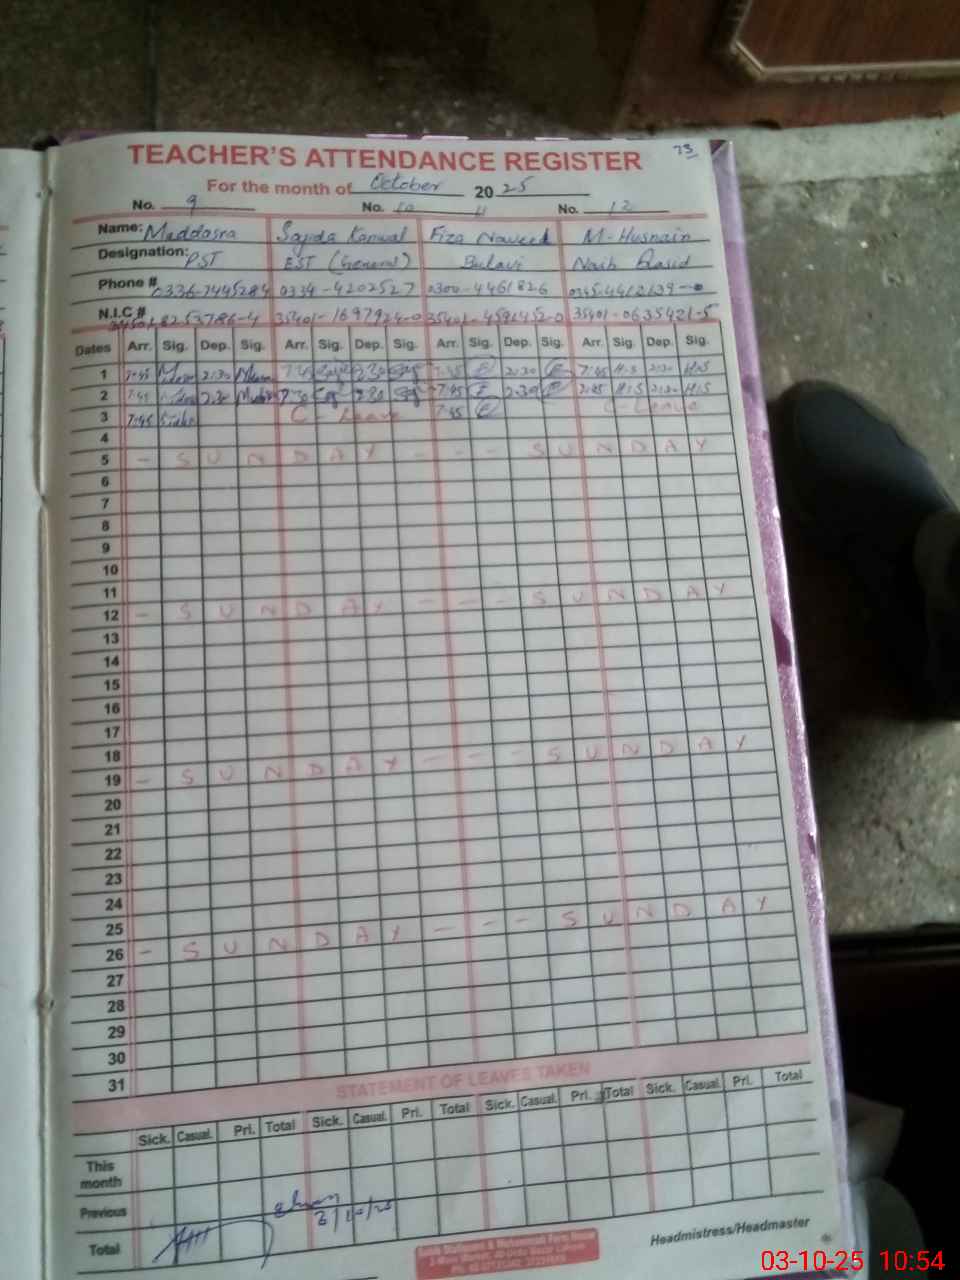 TEACHER'S ATTENDANCE REGISTER
23
For the month of October 2025
No. 9 No. 10 11 No. 12
Name: Maddasra Sajida Kanwal Fiza Naveed M-Husnain
Designation: PST EST (General) Bulavi Naib Qasid
Phone # 0336-7445284 0334-4202527 0300-4461826
N.I.C # 35401-1697924-0 35401-4591452-0 35401-0635421-5
Dates Arr. Sig. Dep. Sig. Arr. Sig. Dep. Sig. Arr. Sig. Dep. Sig. Arr. Sig. Dep. Sig.
1 7:45 2:30 7:45 2:30 7:45 H.S 2:30 H.S
2 7:45 2:30 7:30 2:30 7:45 2:30 H.S H.S
3 7:45 C - Leave 7:45 C-Leave
4
5 - S U N D A Y - - - S U N D A Y
6
7
8
9
10
11
12 - S U N D A Y - - - S U N D A Y
13
14
15
16
17
18
19 - S U N D A Y - - - S U N D A Y
20
21
22
23
24
25
26 - S U N D A Y - - - S U N D A Y
27
28
29
30
31
STATEMENT OF LEAVES TAKEN
Sick. Casual. Pri. Total Sick. Casual. Pri. Total Sick. Casual. Pri. Total Sick. Casual. Pri. Total
This month
Previous
3/10/25
Total
Headmistress/Headmaster
03-10-25 10:54